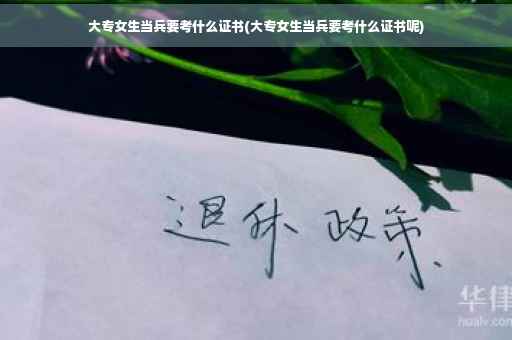 大专女生当兵要考什么证书(大专女生当兵要考什么证书呢)
退休 政策
华律
hualv.com